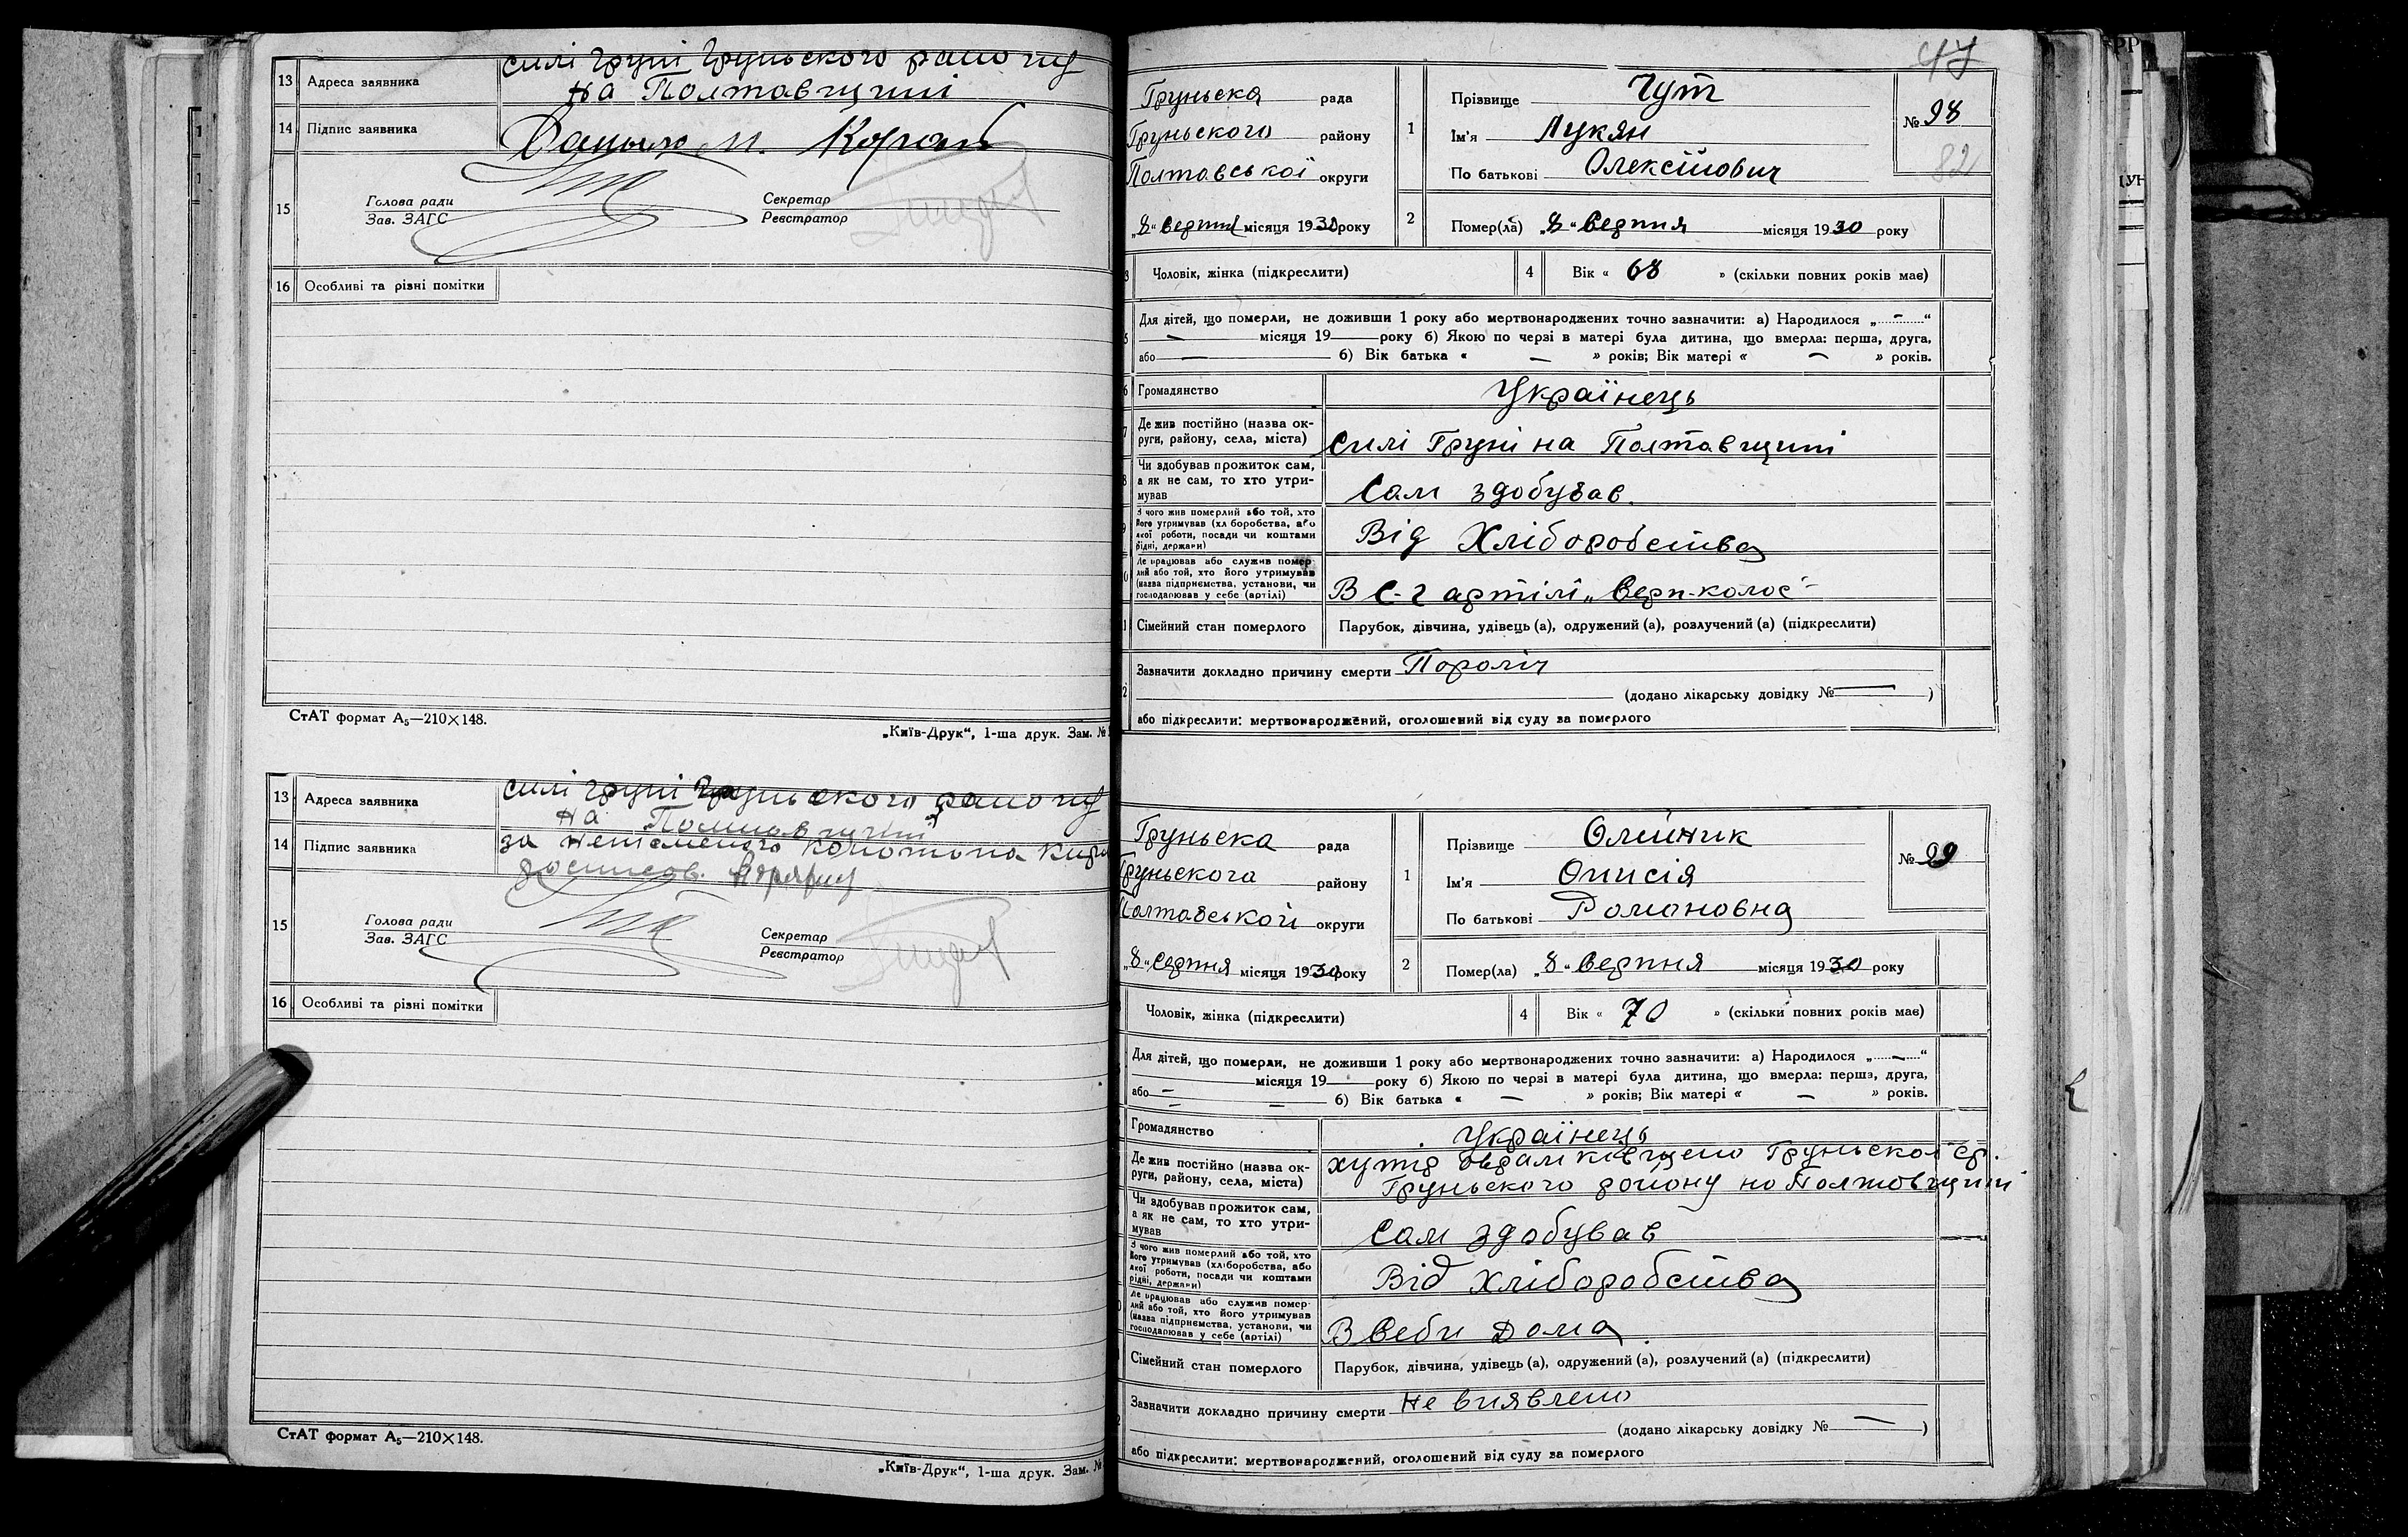 13 Адреса заявника
силі Груні Груньского району
на Полтавщині
14 Підпис заявника
15
Голова ради
Зав. ЗАГС
Секретар
Реєстратор
16 Особливі та різні помітки
СтАТ формат А₅—210×148.
„Київ-Друк“, 1-ша друк. Зам. №
13 Адреса заявника
силі Груні Груньского району
на Полтавщині
14 Підпис заявника
за
15
Голова ради
Зав. ЗАГС
Секретар
Реєстратор
16 Особливі та різні помітки
СтАТ формат А₅—210×148.
„Київ-Друк“, 1-ша друк. Зам. №
47
Груньска рада
Груньского району
Полтавської округи
„8“ серпня місяця 1930 року
1
Прізвище Чут
Ім'я Лукян
По батькові Олексійович
№ 98
82
2 Помер(ла) „8“ серпня місяця 1930 року
3 Чоловік, жінка (підкреслити)
4 Вік « 68 » (скільки повних років має)
Для дітей, що померли, не доживши 1 року або мертвонароджених точно зазначити: а) Народилося „ — “
— місяця 19 року б) Якою по черзі в матері була дитина, що вмерла: перша, друга,
або — б) Вік батька « — » років; Вік матері « — » років.
6 Громадянство Українець
Де жив постійно (назва округи, району, села, міста) Силі Груні на Полтавщині
Чи здобував прожиток сам,
а як не сам, то хто утримував
Сам здобував.
З чого жив померлий або той, хто
його утримував (хліборобства, або
якої роботи, посади чи коштами
рідні, держави)
Від Хліборобства
Де працював або служив помер-
лий або той, хто його утримував
(назва підприємства, установи, чи
господарював у себе (артілі)
В С-г артілі „Серп-колос“
Сімейний стан померлого Парубок, дівчина, удівець (а), одружений (а), розлучений (а) (підкреслити)
Зазначити докладно причину смерти Пороліч
(додано лікарську довідку № — )
або підкреслити: мертвонароджений, оголошений від суду за померлого
Груньска рада
Груньского району
Полтавськой округи
„8“ серпня місяця 1930 року
1
Прізвище Олійник
Ім'я Онисія
По батькові Романовна
№ 99
2 Помер(ла) „8“ серпня місяця 1930 року
Чоловік, жінка (підкреслити)
4 Вік « 70 » (скільки повних років має)
Для дітей, що померли, не доживши 1 року або мертвонароджених точно зазначити: а) Народилося „ — “
місяця 19 року б) Якою по черзі в матері була дитина, що вмерла: перша, друга,
або — б) Вік батька « — » років; Вік матері « — » років.
Громадянство Українець
Де жив постійно (назва округи, району, села, міста)
хутір Груньскої с.р.
Груньского району на Полтовщині
Чи здобував прожиток сам,
а як не сам, то хто утримував
Сам здобував
З чого жив померлий або той, хто
його утримував (хліборобства, або
якої роботи, посади чи коштами
рідні, держави)
Від хліборобства
Де працював або служив помер-
лий або той, хто його утримував
(назва підприємства, установи, чи
господарював у себе (артілі)
В Себи Дома.
Сімейний стан померлого Парубок, дівчина, удівець (а), одружений (а), розлучений (а) (підкреслити)
Зазначити докладно причину смерти Не виявлено
(додано лікарську довідку № — )
або підкреслити: мертвонароджений, оголошений від суду за померлого